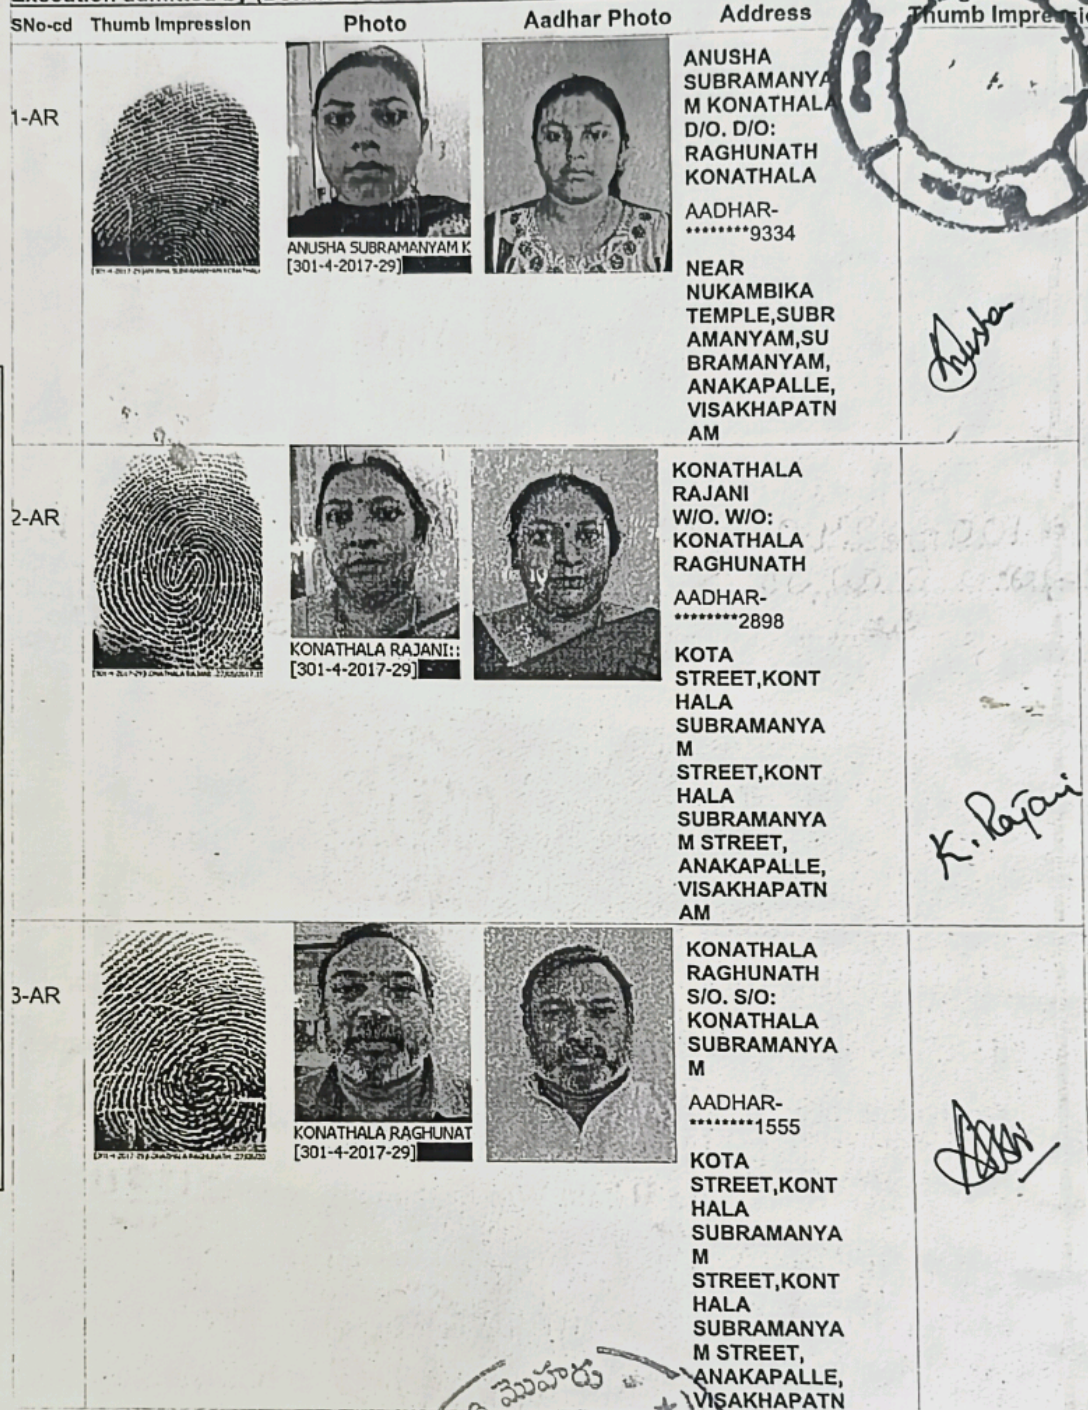 SNo-cd Thumb Impression Photo Aadhar Photo Address Thumb Impressi
1-AR
ANUSHA SUBRAMANYAM K
[301-4-2017-29]
ANUSHA
SUBRAMANYA
M KONATHALA
D/O. D/O:
RAGHUNATH
KONATHALA
AADHAR-
********9334
NEAR
NUKAMBIKA
TEMPLE,SUBR
AMANYAM,SU
BRAMANYAM,
ANAKAPALLE,
VISAKHAPATN
AM
Anusha
2-AR
KONATHALA RAJANI::
[301-4-2017-29]
KONATHALA
RAJANI
W/O. W/O:
KONATHALA
RAGHUNATH
AADHAR-
********2898
KOTA
STREET,KONT
HALA
SUBRAMANYA
M
STREET,KONT
HALA
SUBRAMANYA
M STREET,
ANAKAPALLE,
VISAKHAPATN
AM
K. Rajani
3-AR
KONATHALA RAGHUNAT
[301-4-2017-29]
KONATHALA
RAGHUNATH
S/O. S/O:
KONATHALA
SUBRAMANYA
M
AADHAR-
********1555
KOTA
STREET,KONT
HALA
SUBRAMANYA
M
STREET,KONT
HALA
SUBRAMANYA
M STREET,
ANAKAPALLE,
VISAKHAPATN
మొహరు